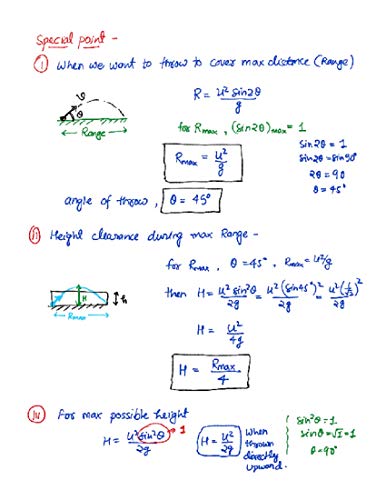 Special point -
(i) When we want to throw to cover max distance (Range)
R = u² sin2θ / g
u
θ
← Range →
for Rmax, (sin2θ)max = 1
Rmax = u²/g
sin2θ = 1
sin2θ = sin90°
2θ = 90
θ = 45°
angle of throw, θ = 45°
(ii) Height clearance during max Range -
for Rmax, θ = 45°, Rmax = u²/g
H
h
← Rmax →
then H = u² sin²θ / 2g = u² (sin45°)² / 2g = u² (1/√2)² / 2g
H = u² / 4g
H = Rmax / 4
(iii) For max possible height
H = u² sin²θ / 2g → 1
H = u² / 2g
when thrown directly upward.
sin²θ = 1
sinθ = √1 = 1
θ = 90°